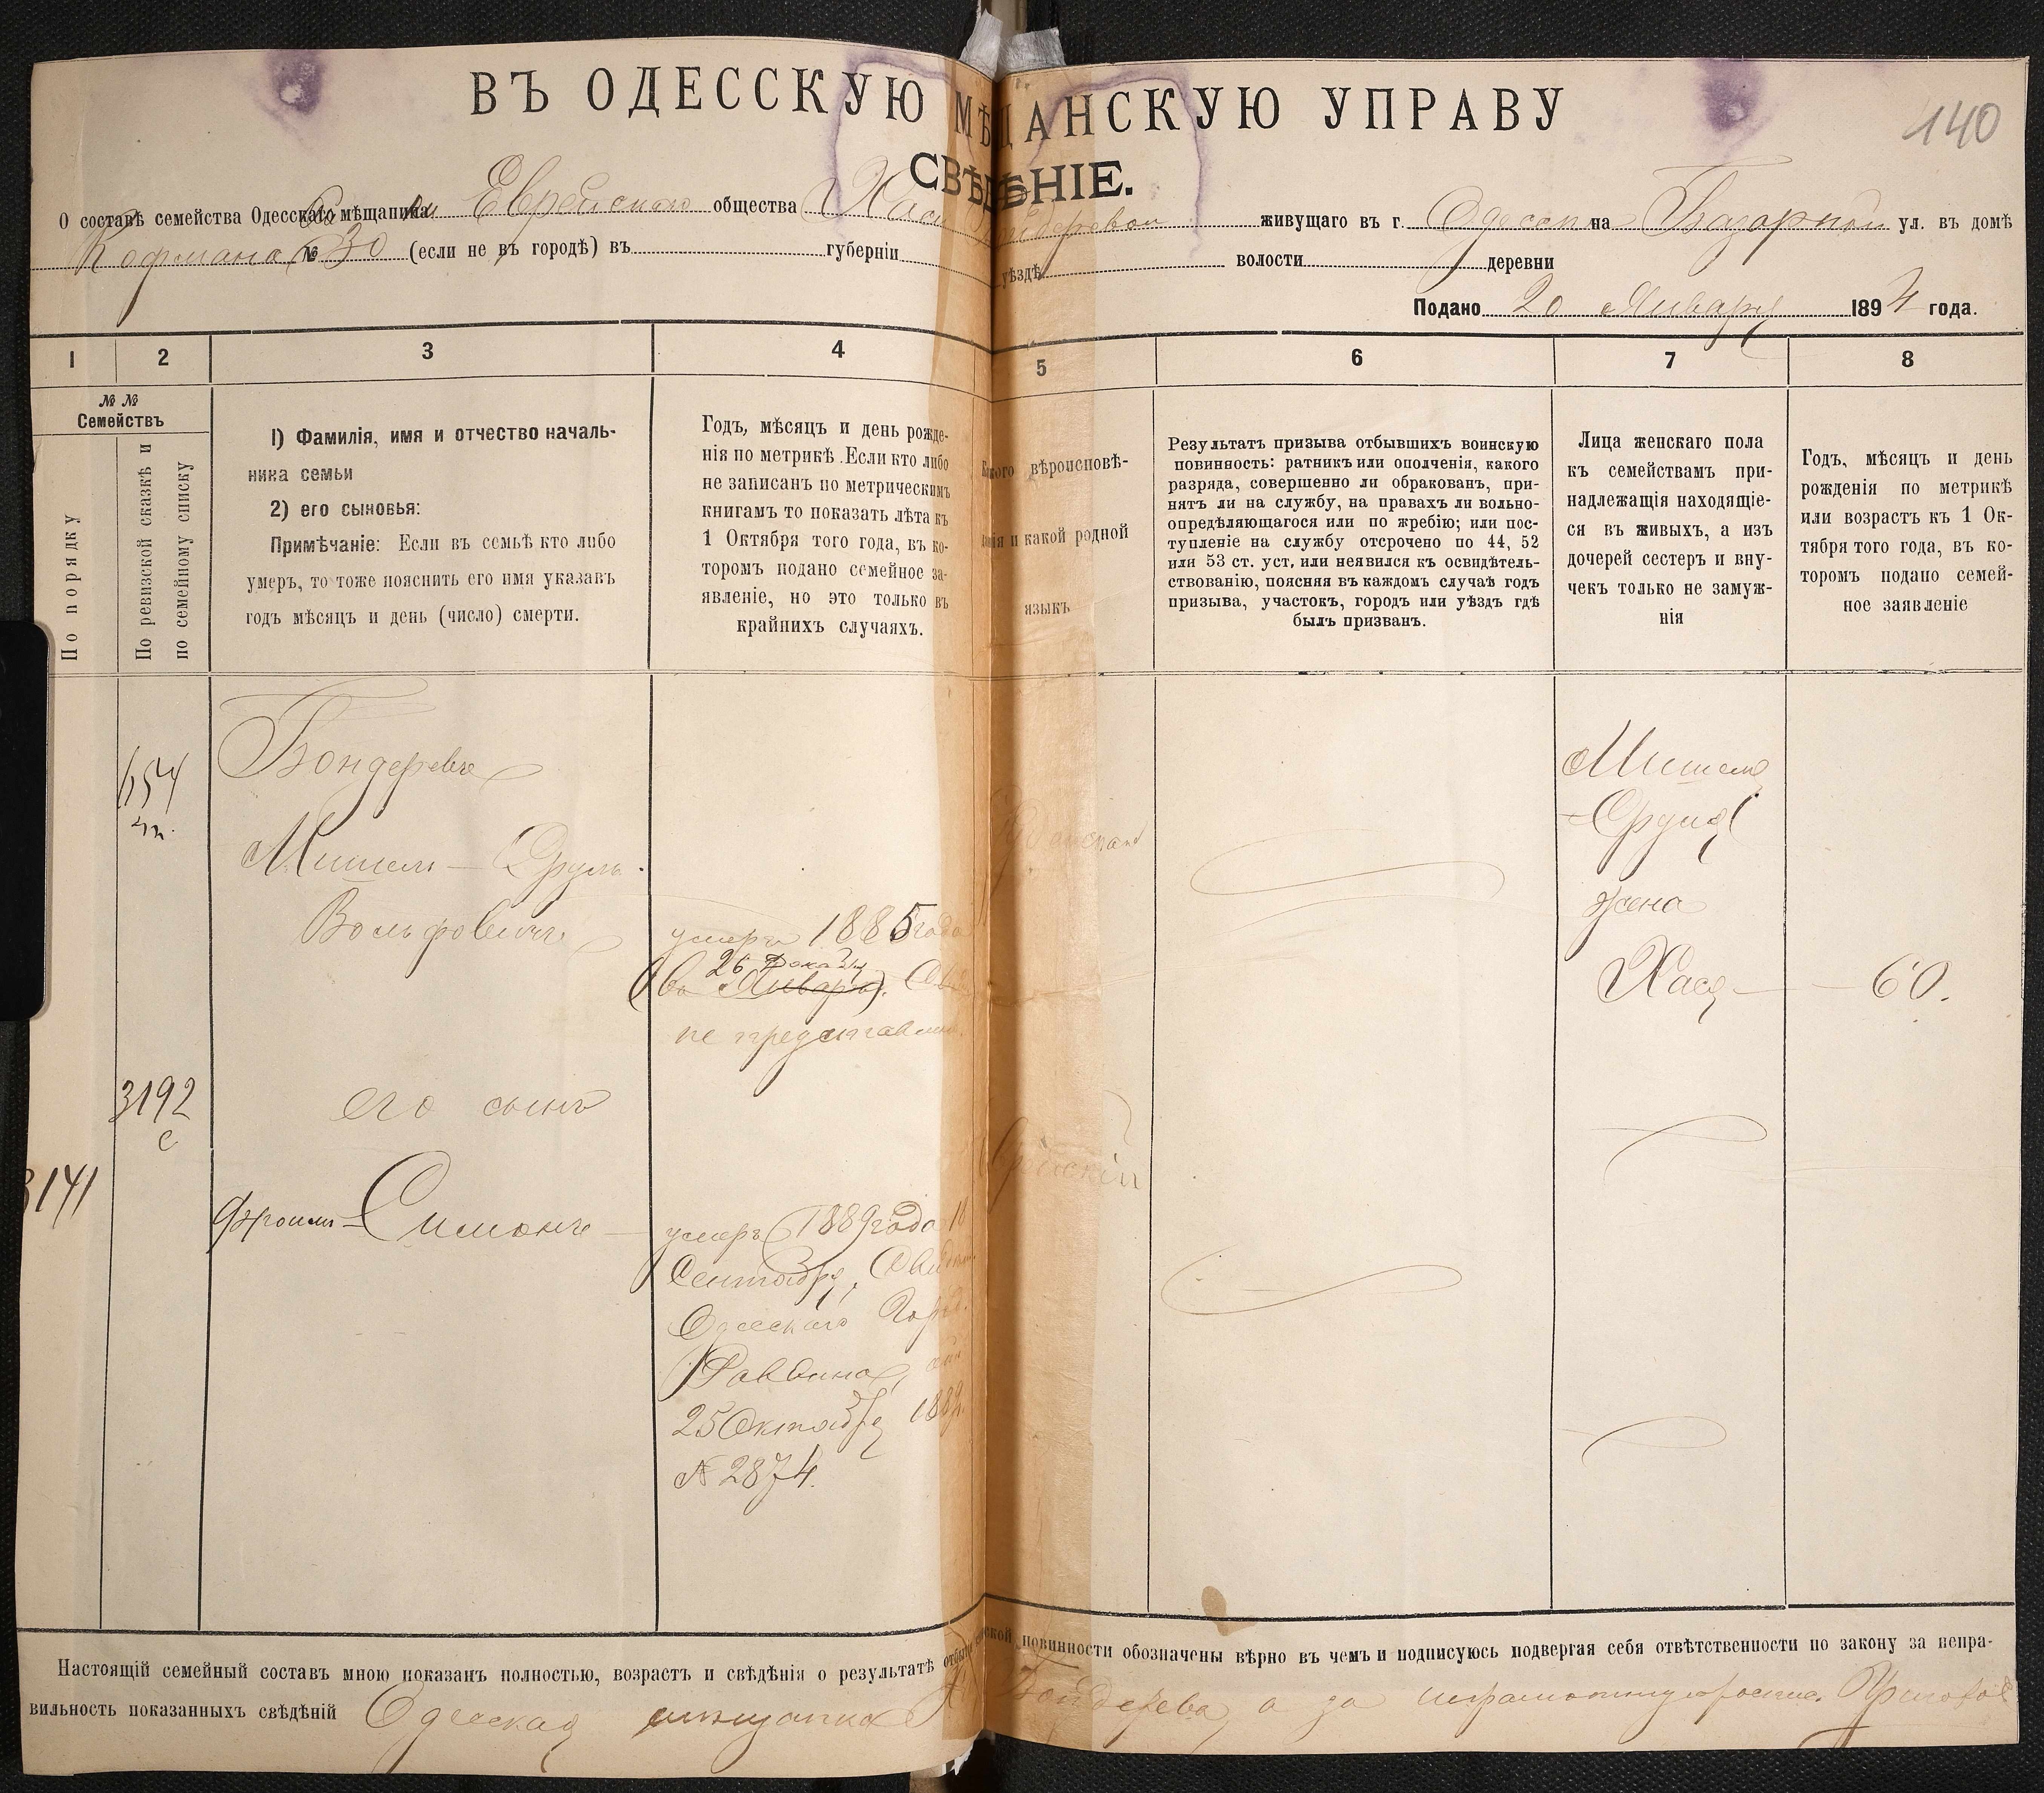 140
ВЪ ОДЕССКУЮ МѢЩАНСКУЮ УПРАВУ
СВѢДѢНІЕ.
О составѣ семейства Одесскаго мѣщанина Еврейскаго общества Хаси Бондеревой живущаго въ г. Одессѣ на Базарной ул. въ домѣ
Кофмана № 30 (если не въ городѣ) въ губерніи уѣздѣ волости деревни
Подано 20 Января 1894 года.
1 2 3 4 5 6 7 8
№ №
Семействъ
По порядку
По ревизской сказкѣ и
по семейному списку
1) Фамилія, имя и отчество началь-
ника семьи
2) его сыновья:
Примѣчаніе: Если въ семьѣ кто либо
умеръ, то тоже пояснить его имя указавъ
годъ мѣсяцъ и день (число) смерти.
Годъ, мѣсяцъ и день рожде-
нія по метрикѣ. Если кто либо
не записанъ по метрическимъ
книгамъ то показать лѣта къ
1 Октября того года, въ ко-
торомъ подано семейное за-
явленіе, но это только въ
крайнихъ случаяхъ.
вѣроисповѣ-
и какой родной
языкъ
Результатъ призыва отбывшихъ воинскую
повинность: ратникъ или ополченія, какого
разряда, совершенно ли обракованъ, при-
нятъ ли на службу, на правахъ ли вольно-
опредѣляющагося или по жребію; или пос-
тупленіе на службу отсрочено по 44, 52
или 53 ст. уст, или неявился къ освидѣтель-
ствованію, поясняя въ каждомъ случаѣ годъ
призыва, участокъ, городъ или уѣздъ гдѣ
былъ призванъ.
Лица женскаго пола
къ семействамъ при-
надлежащія находящіе-
ся въ живыхъ, а изъ
дочерей сестеръ и вну-
чекъ только не замуж-
нія
Годъ, мѣсяцъ и день
рожденія по метрикѣ
или возрастъ къ 1 Ок-
тября того года, въ ко-
торомъ подано семей-
ное заявленіе
654
Бондеревъ
Мишель-Сруль
Вольфовичъ
умеръ 1885 года
26
(въ Января).
не представлено.
Мишеля
-Сруля
жена
Хася 60.
3192
с
его сынъ
3141
Фроимъ-Симонъ
умеръ 1889 года 18
Сентября,
Одесскаго Город.
Раввина,
25 Октября 1889
№ 2874.
Еврейскій
Настоящій семейный составъ мною показанъ полностью, возрастъ и свѣдѣнія о результатѣ повинности обозначены вѣрно въ чемъ и подписуюсь подвергая себя отвѣтственности по закону за непра-
вильность показанныхъ свѣдѣній Одесская мѣщанка Бондерева, а за